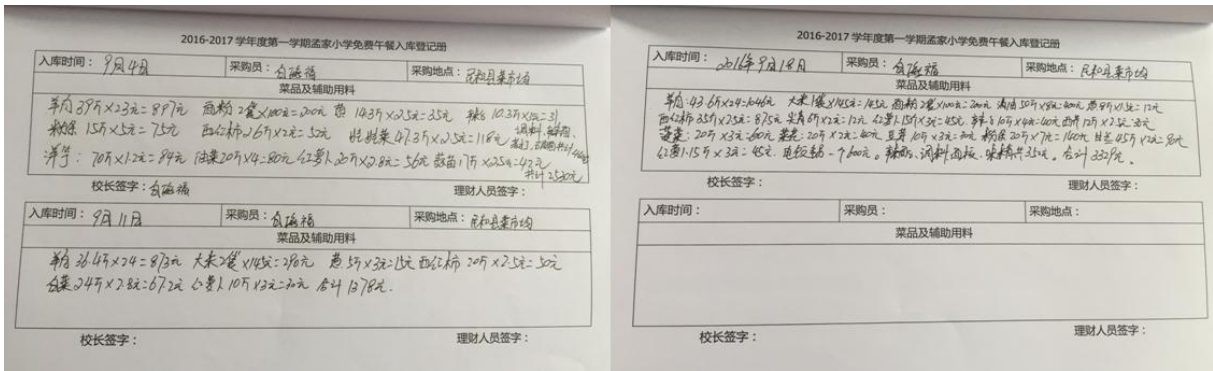 2016-2017学年度第一学期孟家小学免费午餐入库登记册
入库时间： 9月4日 采购员： 采购地点：民和县菜市场
菜品及辅助用料
羊肉39斤×23元=897元 面粉2袋×100元=200元 葱14.3斤×2.5元=35元 10.3斤×3元=31
粉条15斤×5元=75元 西红柿26斤×2元=52元 47.3斤×2.5元=118元
洋芋：70斤×1.2元=84元 油菜20斤×4=80元 红萝卜20斤×2.8元=56元 17斤×2.5元=42元
共计2530元
校长签字： 理财人员签字：
入库时间： 9月11日 采购员： 采购地点：民和县菜市场
菜品及辅助用料
羊肉36.4斤×24=873元 大米2袋×145元=290元 葱5斤×3元=15元 西红柿20斤×2.5元=50元
白菜24斤×2.8元=67.2元 红萝卜10斤×3元=30元 合计1378元.
校长签字： 理财人员签字：
2016-2017学年度第一学期孟家小学免费午餐入库登记册
入库时间： 2016年9月18日 采购员： 采购地点：民和县菜市场
菜品及辅助用料
羊肉:43.6斤×24=1046元 大米1袋×145元=145元 面粉2袋×100元=200元 清油50斤×8元=400元
西红柿35斤×2.5元=87.5元 6斤×2元=12元 红萝卜15斤×3元=45元 10斤×4元=40元 12斤×2.5元=30元
菠菜：20斤×3元=60元 20斤×2元=40元 豆芽10斤×3元=30元 粉条20斤×7元=140元 45斤×2元=90元
红萝卜15斤×3元=45元. 电饭锅一个600元。 调料 共350元。合计3329元。
校长签字： 理财人员签字：
入库时间： 采购员： 采购地点：
菜品及辅助用料
校长签字： 理财人员签字：